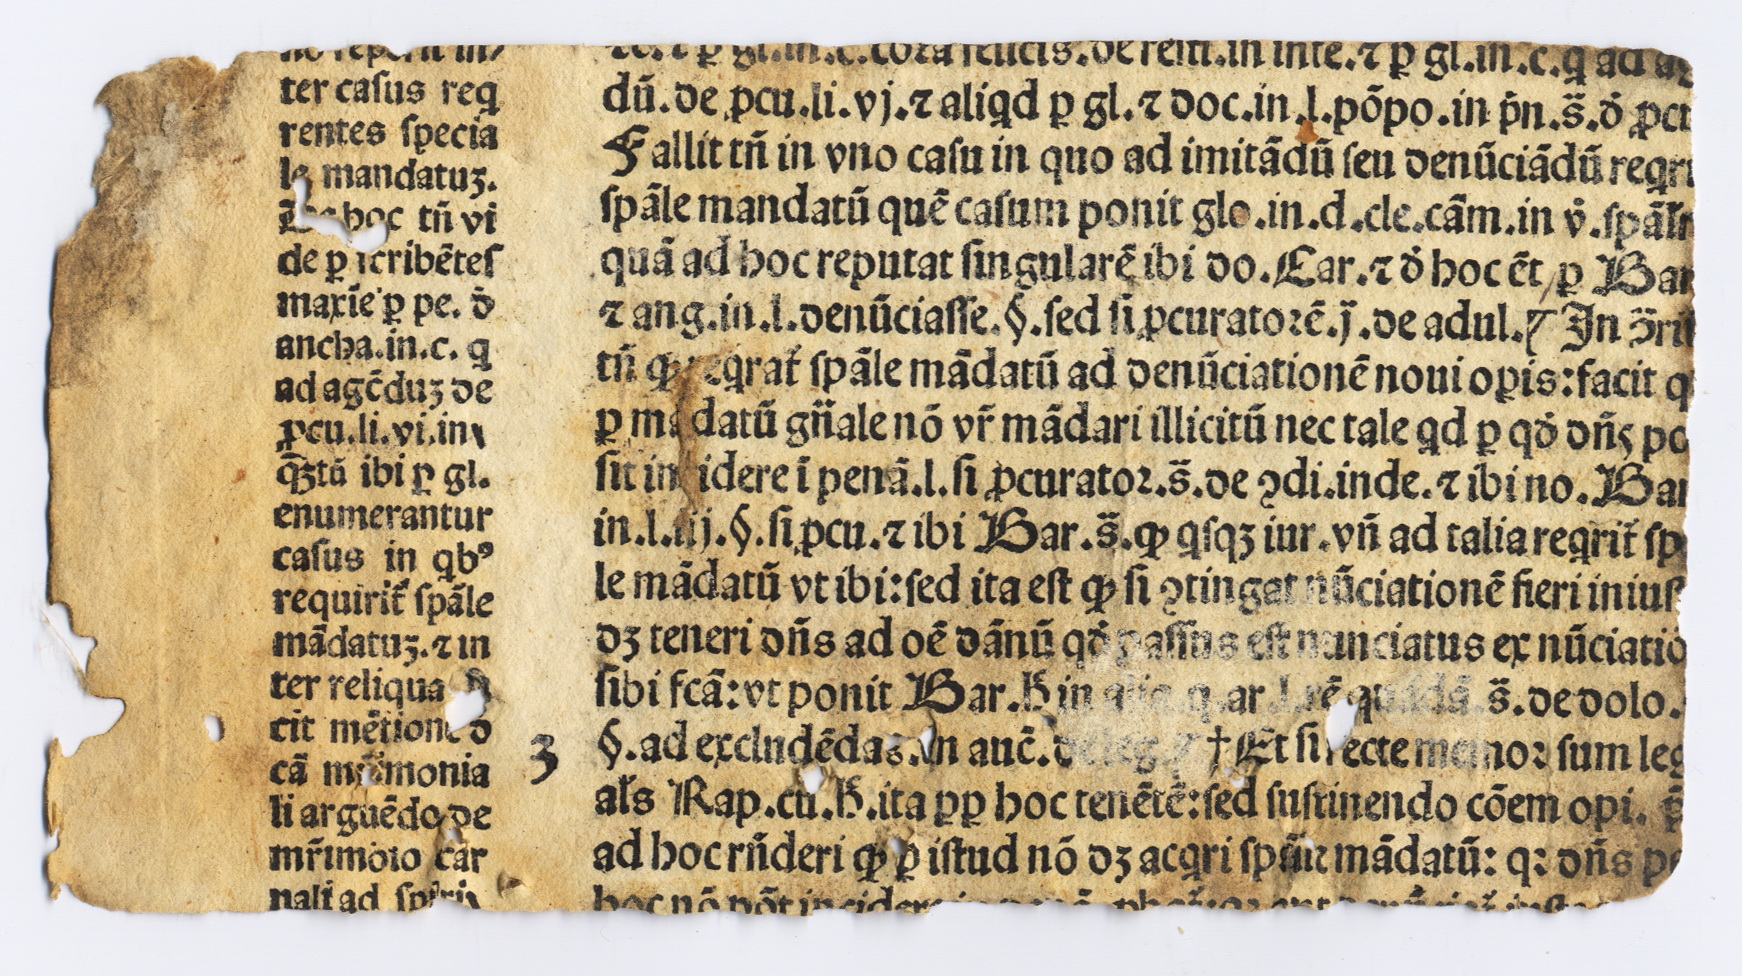 ter casus req
rentes specia
le mandatuz.
hoc tñ vi
de ꝑ scribẽtes
maxĩe ꝑ pe. đ
ancha.in.c. q
ad agẽduz de
ꝓcu.li.vi.in
ibi ꝑ gl.
enumerantur
casus in qbꝰ
requirit̃ spãle
mãdatuz.⁊ in
ter reliqua
cit mẽtionẽ đ
cã monia
li arguẽdo de
mr̃imoio car
3
dũ.de ꝓcu.li.vj.⁊ aliqd ꝑ gl.⁊ doc.in.l.põpo.in pñ.s̃.đ ꝓcu
Fallit tñ in vno casu in quo ad imitãdũ seu denũciãdũ reqri
spãle mandatũ quẽ casum ponit glo.in.d.cle.cãm.in v̉.spãlr
quã ad hoc reputat singularẽ ibi do.Car.⁊ đ hoc ẽt ꝑ Bar
⁊ ang.in.l.denũciasse.§.sed si ꝓcuratorẽ.j̃.de adul.⁊ In ꝯ̃riũ
tñ ꝙ reqrat̃ spãle mãdatũ ad denũciationẽ noui oꝑis:facit q
ꝑ mãdatũ gñale nõ vr̃ mãdari illicitũ nec tale qd ꝑ qđ dñs po
sit incidere ĩ penã.l.si ꝓcurator.s̃.de ꝯdi.inde.⁊ ibi no.Bar
in.l.iij.§.si ꝓcu.⁊ ibi Bar.s̃.ꝙ qsqz iur.vñ ad talia reqrit̃ sp
le mãdatũ vt ibi:sed ita est ꝙ si ꝯtingat nũciationẽ fieri inius
dz teneri dñs ad oẽ dãnũ qđ passus est nunciatus ex nũciatiõ
sibi fcã:vt ponit Bar.ꝉi in alia.q.ar.l.rẽ quãdã.s̃.de dolo.
§.ad excludẽdas.in auc̃. †Et si recte memor sum leg
als̃ Rap.cu.ꝉi.ita ꝓꝑ hoc tenẽtẽ:sed sustinendo cõem opi.
ad hoc rñderi ꝙ ꝑ istud nõ dz acqri spãle mãdatũ: qꝛ dñs pe